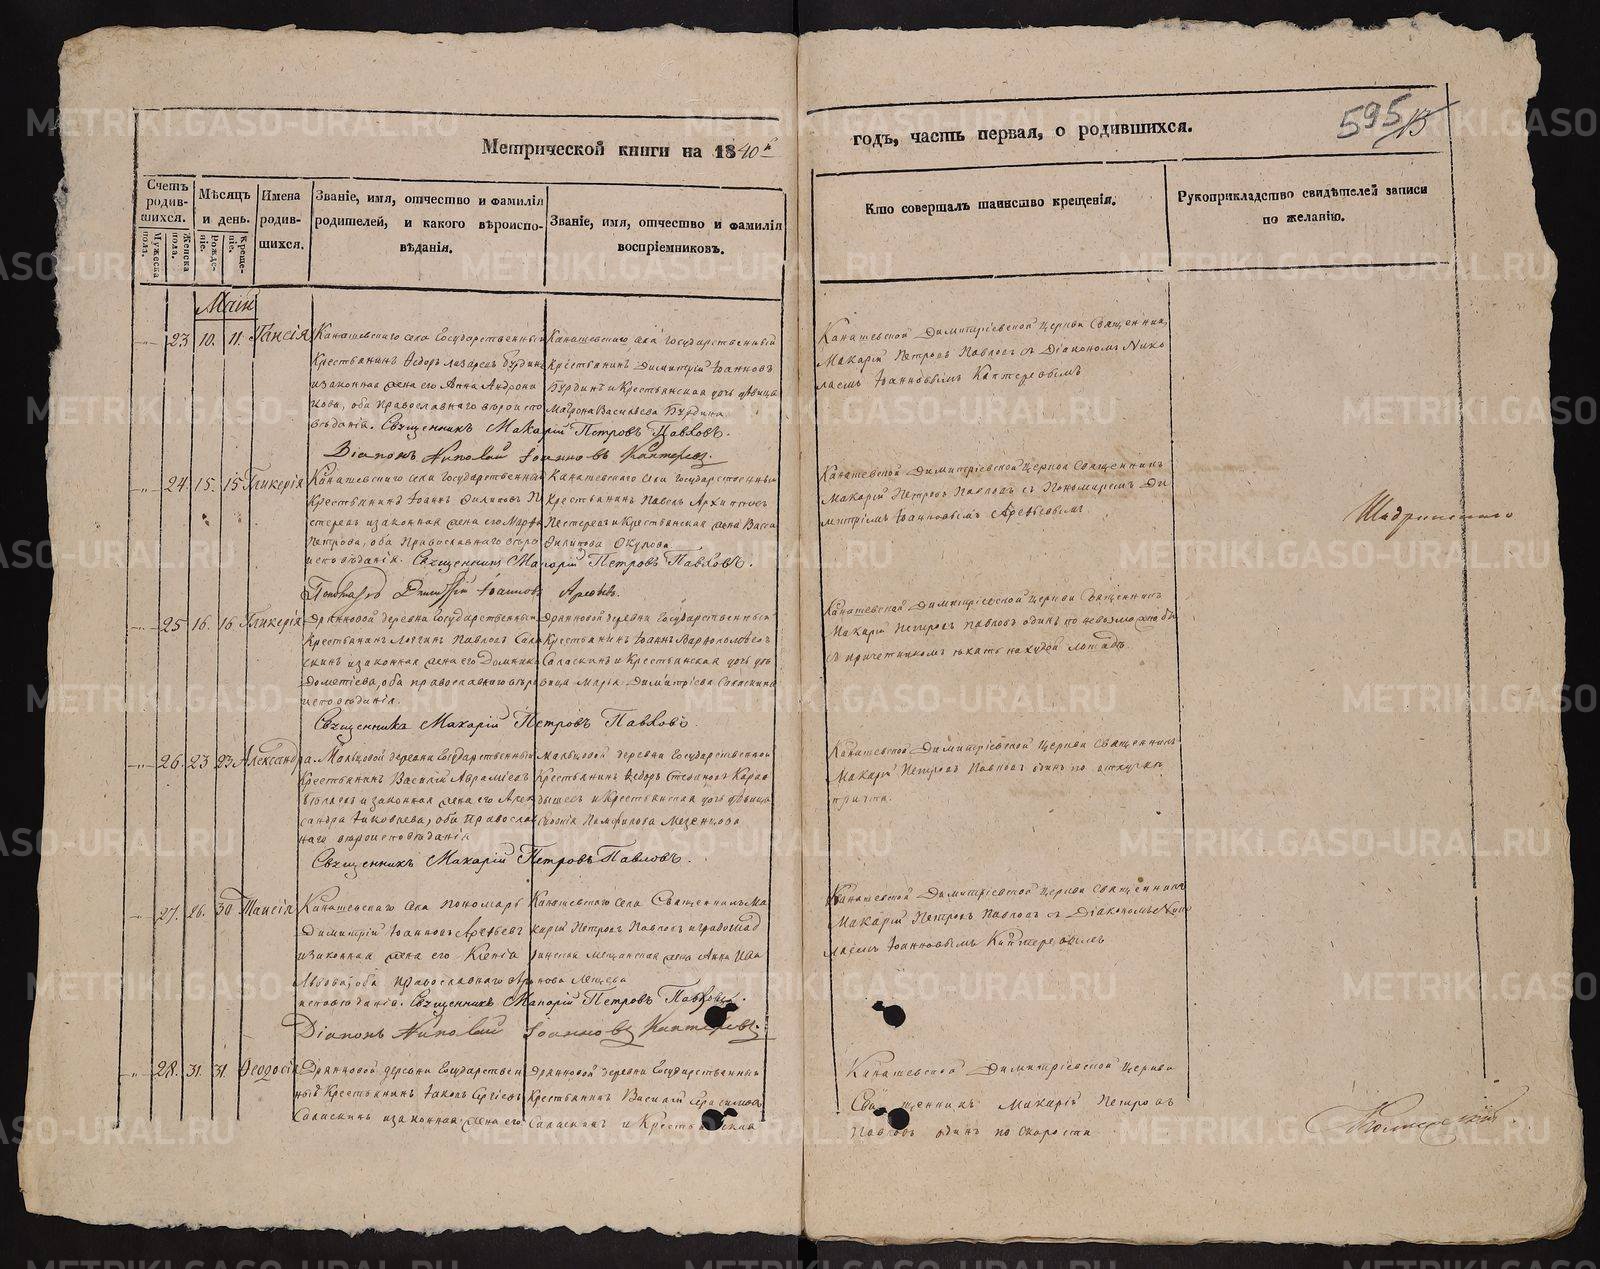 595
13
Метрической книги на 1840 й
годъ, часть первая, о родившихся.
Счетъ родив-шихся.
Мужеска пола.
Женска пола.
Мѣсяцъ и день.
Рожде-ніе.
Креще-ніе.
Имена родив-шихся.
Званіе, имя, отчество и фамилія родителей, и какого вѣроиспо-вѣданія.
Званіе, имя, отчество и фамилія воспріемниковъ.
Кто совершалъ таинство крещенія.
Рукоприкладство свидѣтелей записи по желанію.
Маій
23 10. 11. Таисія
Канашевскаго села Государственный
Крестьянинъ Ѳедоръ Лазаревъ Бурдинъ
и законная жена его Анна Андрона
кова, оба православнаго вѣроиспо
вѣданія. Священникъ Макарій Петровъ Павловъ.
Діаконъ Николай Іоанновъ Каптеревъ.
Канашевскаго села государственный
Крестьянинъ Димитрій Іоанновъ
Бурдинъ и Крестьянская дочь дѣвица
Матрона Васильева Бурдина
Канашевской Димитріевской церкви Священникъ
Макарій Петровъ Павловъ съ Діакономъ Нико
лаемъ Іоанновымъ Каптеревымъ
24. 15. 15 Гликерія
Канашевскаго села Государственный
Крестьянинъ Іоаннъ Филиповъ П
естеревъ и законная жена его Марѳа
Петрова, оба Православнаго вѣро
исповѣданія. Священникъ Макарій Петровъ Павловъ.
Пономарь Димитрій Іоанновъ Арефьевъ.
Канашевскаго Села Государственный
Крестьянинъ Павелъ Архиповъ
Пестеревъ и Крестьянская жена Васса
Филипова Окулова
Канашевской Димитріевской церкви Священникъ
Макарій Петровъ Павловъ съ Пономаремъ Ди
митріемъ Іоанновымъ Арефьевымъ
Шадринскаго
25 16. 16 Гликерія
Дрянновой деревни Государственный
Крестьянинъ Логгинъ Павловъ Сала
скинъ и законная жена его Домника
Дометіева, оба православнаго вѣро
исповѣданія.
Священникъ Макарій Петровъ Павловъ.
Дрянновой деревни Государственный
Крестьянинъ Іоаннъ Варфоломѣевъ
Саласкинъ и Крестьянская дочь дѣ
вица Марія Димитріева Саласкина
Канашевской Димитріевской церкви Священникъ
Макарій Петровъ Павловъ одинъ по невозможнобъ
съ причетникомъ ѣхать на худой лошадѣ.
26. 23 23 Александра.
Мальцовой деревни Государственный
Крестьянинъ Василій Авраміевъ
и законная жена его Алек
сандра Іаковлева, оба Православ
наго вѣроисповѣданія
Священникъ Макарій Петровъ Павловъ.
Мальцовой деревни Государственной
Крестьянинъ Ѳедоръ Стефановъ Карав
дышевъ и Крестьянская дочь дѣвица
Памфилова Мезенцова
Канашевской Димитріевской церкви Священникъ
Макарій Петровъ Павловъ одинъ по отлучкѣ
причта.
27. 26. 30 Таисія
Канашевскаго села пономарь
Димитрій Іоанновъ Арефьевъ
и законная жена его Ксенія
Львова, оба православнаго вѣро
исповѣданія. Священникъ Макарій Петровъ Павловъ.
Діаконъ Николай Іоанновъ Каптеревъ.
Канашевскаго села Священникъ Ма
карій Петровъ Павловъ и града Шад
ринска Мещанская жена Анна Ива
нова Лещева
Канашевской Димитріевской церкви Священникъ
Макарій Петровъ Павловъ съ Діакономъ Нико
лаемъ Іоанновымъ Каптеревымъ
28. 31. 31. Ѳеодосія
Дрянновой деревни Государствен
ный Крестьянинъ Іаковъ Сергіевъ
Саласкинъ и законная жена его
Дрянновой деревни Государственный
Крестьянинъ Василій Герасимовъ
Саласкинъ и Крестьянская
Канашевской Димитріевской церкви
Священникъ Макарій Петровъ
Павловъ одинъ по скорости